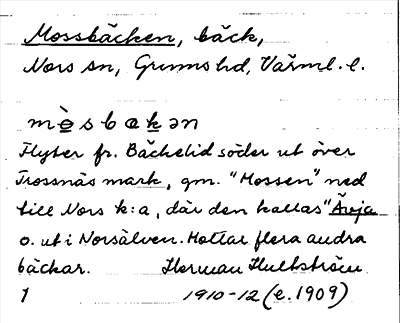 Mossbäcken, bäck,
Nors sn, Grums hd, Värml. l.
mòsbakən
Flyter fr. Bäckelid söder ut över
Trossnäs mark, gm. "Mossen" ned
till Nors k:a, där den kallas "Åvja
o. ut i Norsälven. Mottar flera andra
bäckar. Herman Hultström
1 1910-12 (e. 1909)